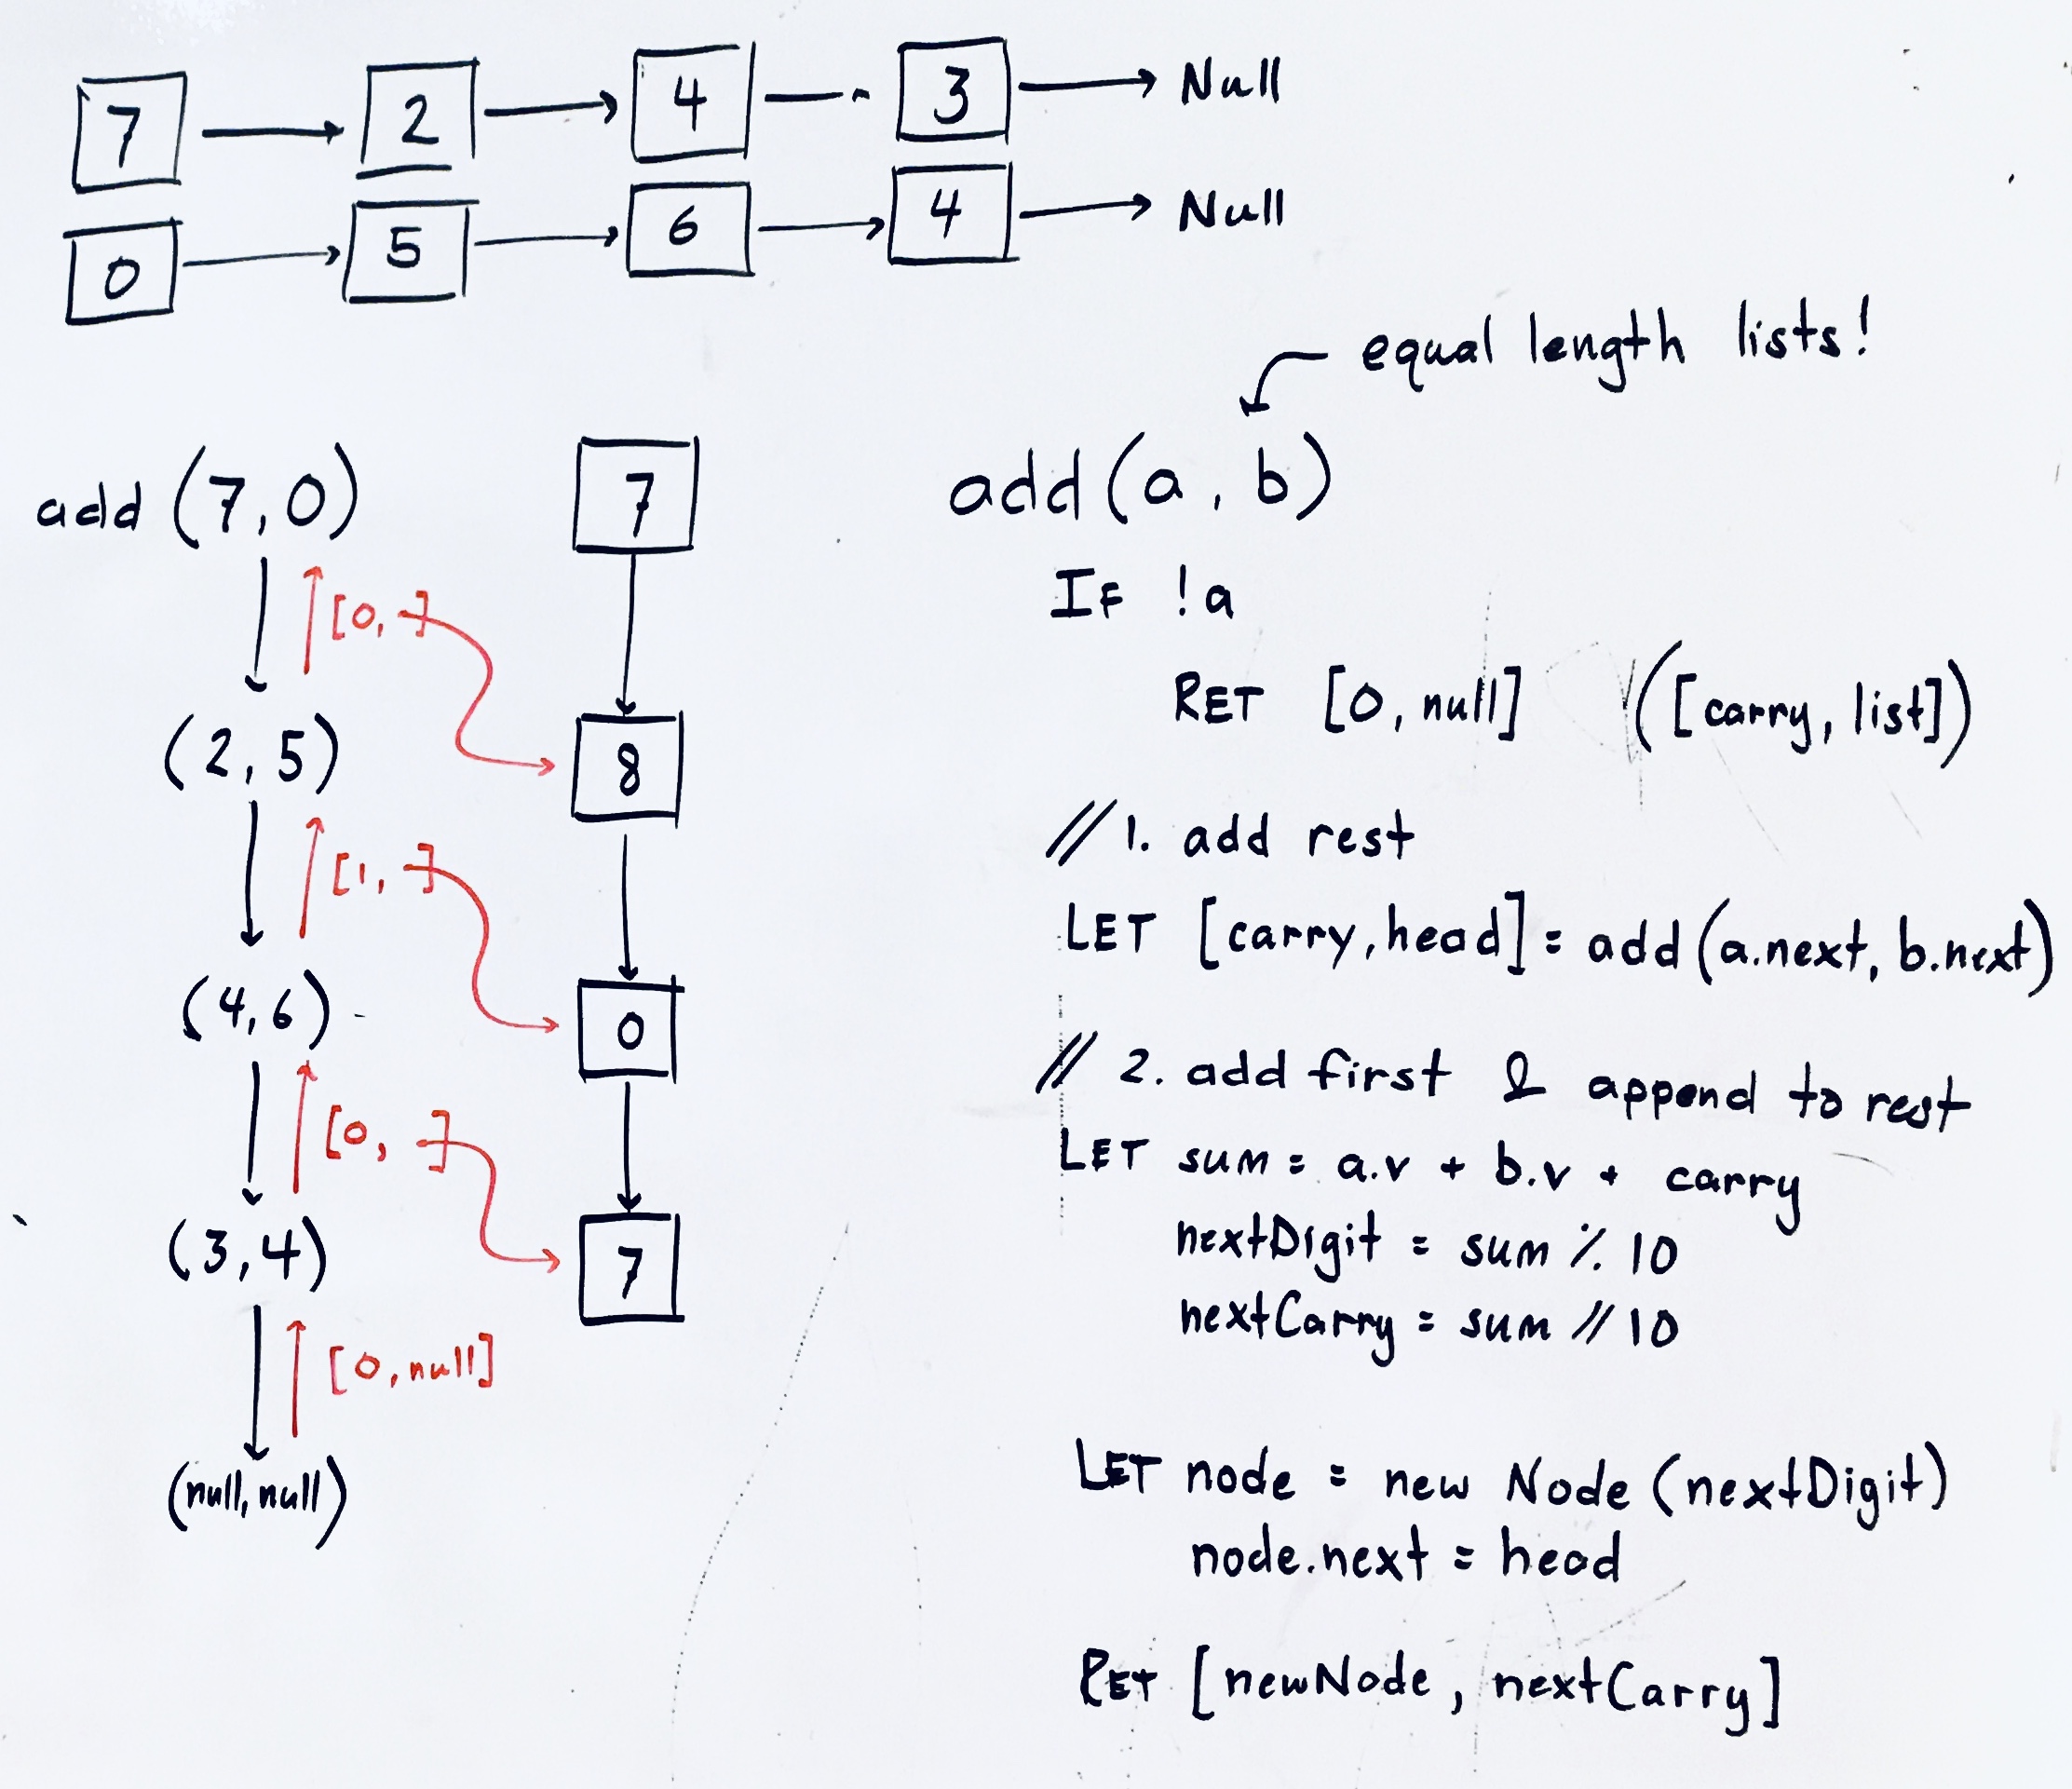 7 2 4 3 Null
0 5 6 4 Null
equal length lists!
add (7,0)
7
[0, ]
(2, 5)
8
[1, ]
(4,6)
0
[0, ]
(3,4)
7
[0,null]
(null,null)
add(a, b)
IF !a
RET [0, null] ([carry, list])
// 1. add rest
LET [carry,head] = add(a.next, b.next)
// 2. add first & append to rest
LET sum = a.v + b.v + carry
nextDigit = sum % 10
nextCarry = sum // 10
LET node = new Node (nextDigit)
node.next = head
RET [newNode, nextCarry]